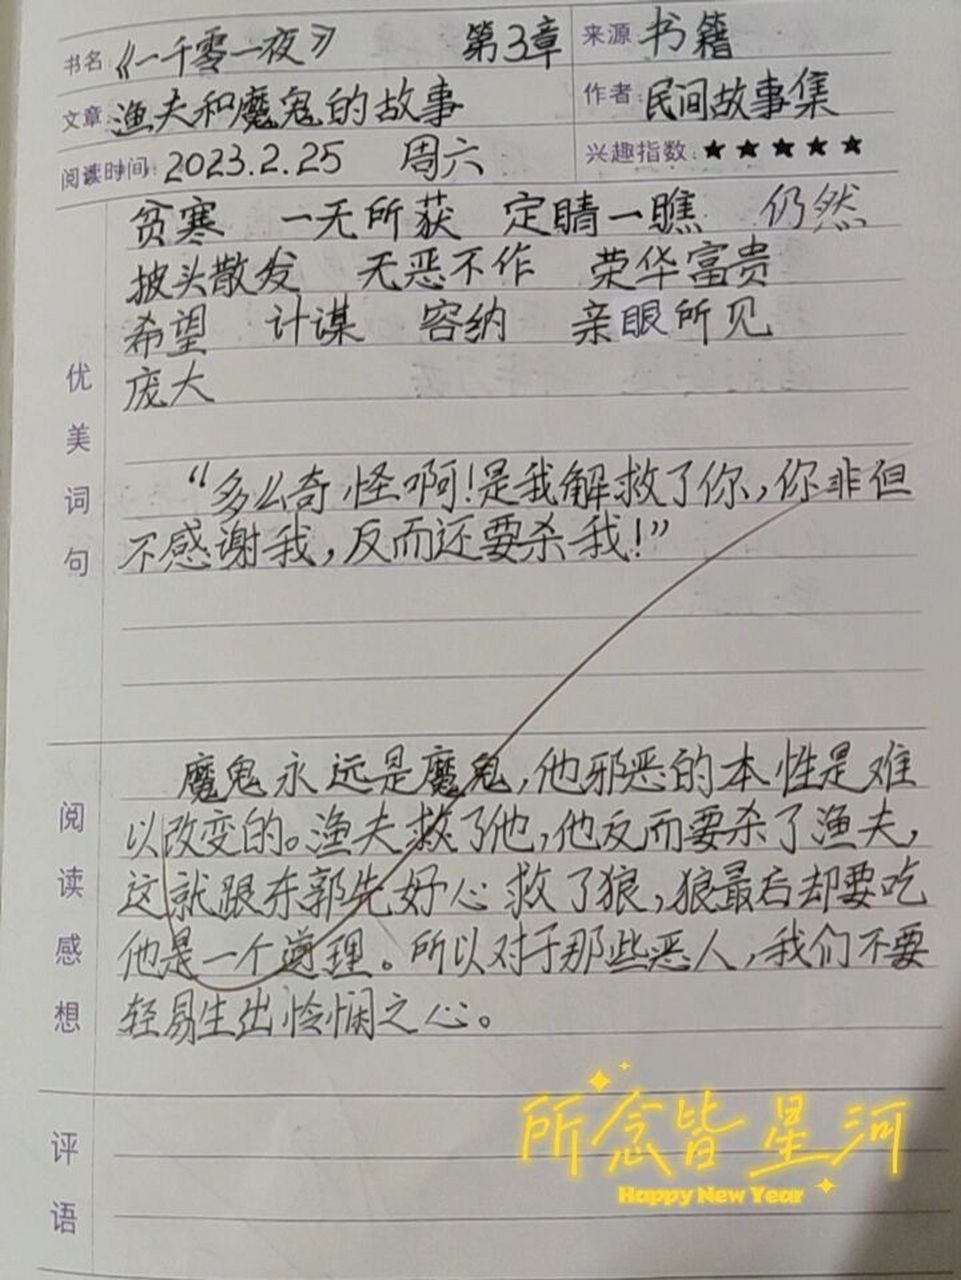 书名:《一千零一夜》 第3章 来源 书籍
文章: 渔夫和魔鬼的故事 作者: 民间故事集
阅读时间: 2023.2.25 周六 兴趣指数: ★★★★★
优美词句
贫寒 一无所获 定睛一瞧 仍然
披头散发 无恶不作 荣华富贵
希望 计谋 容纳 亲眼所见
庞大
“多么奇怪啊!是我解救了你,你非但
不感谢我,反而还要杀我!”
阅读感想
魔鬼永远是魔鬼,他邪恶的本性是难
以改变的。渔夫救了他,他反而要杀了渔夫,
这就跟东郭先好心救了狼,狼最后却要吃
他是一个道理。所以对于那些恶人,我们不要
轻易生出怜悯之心。
评语
所念皆星河
Happy New Year